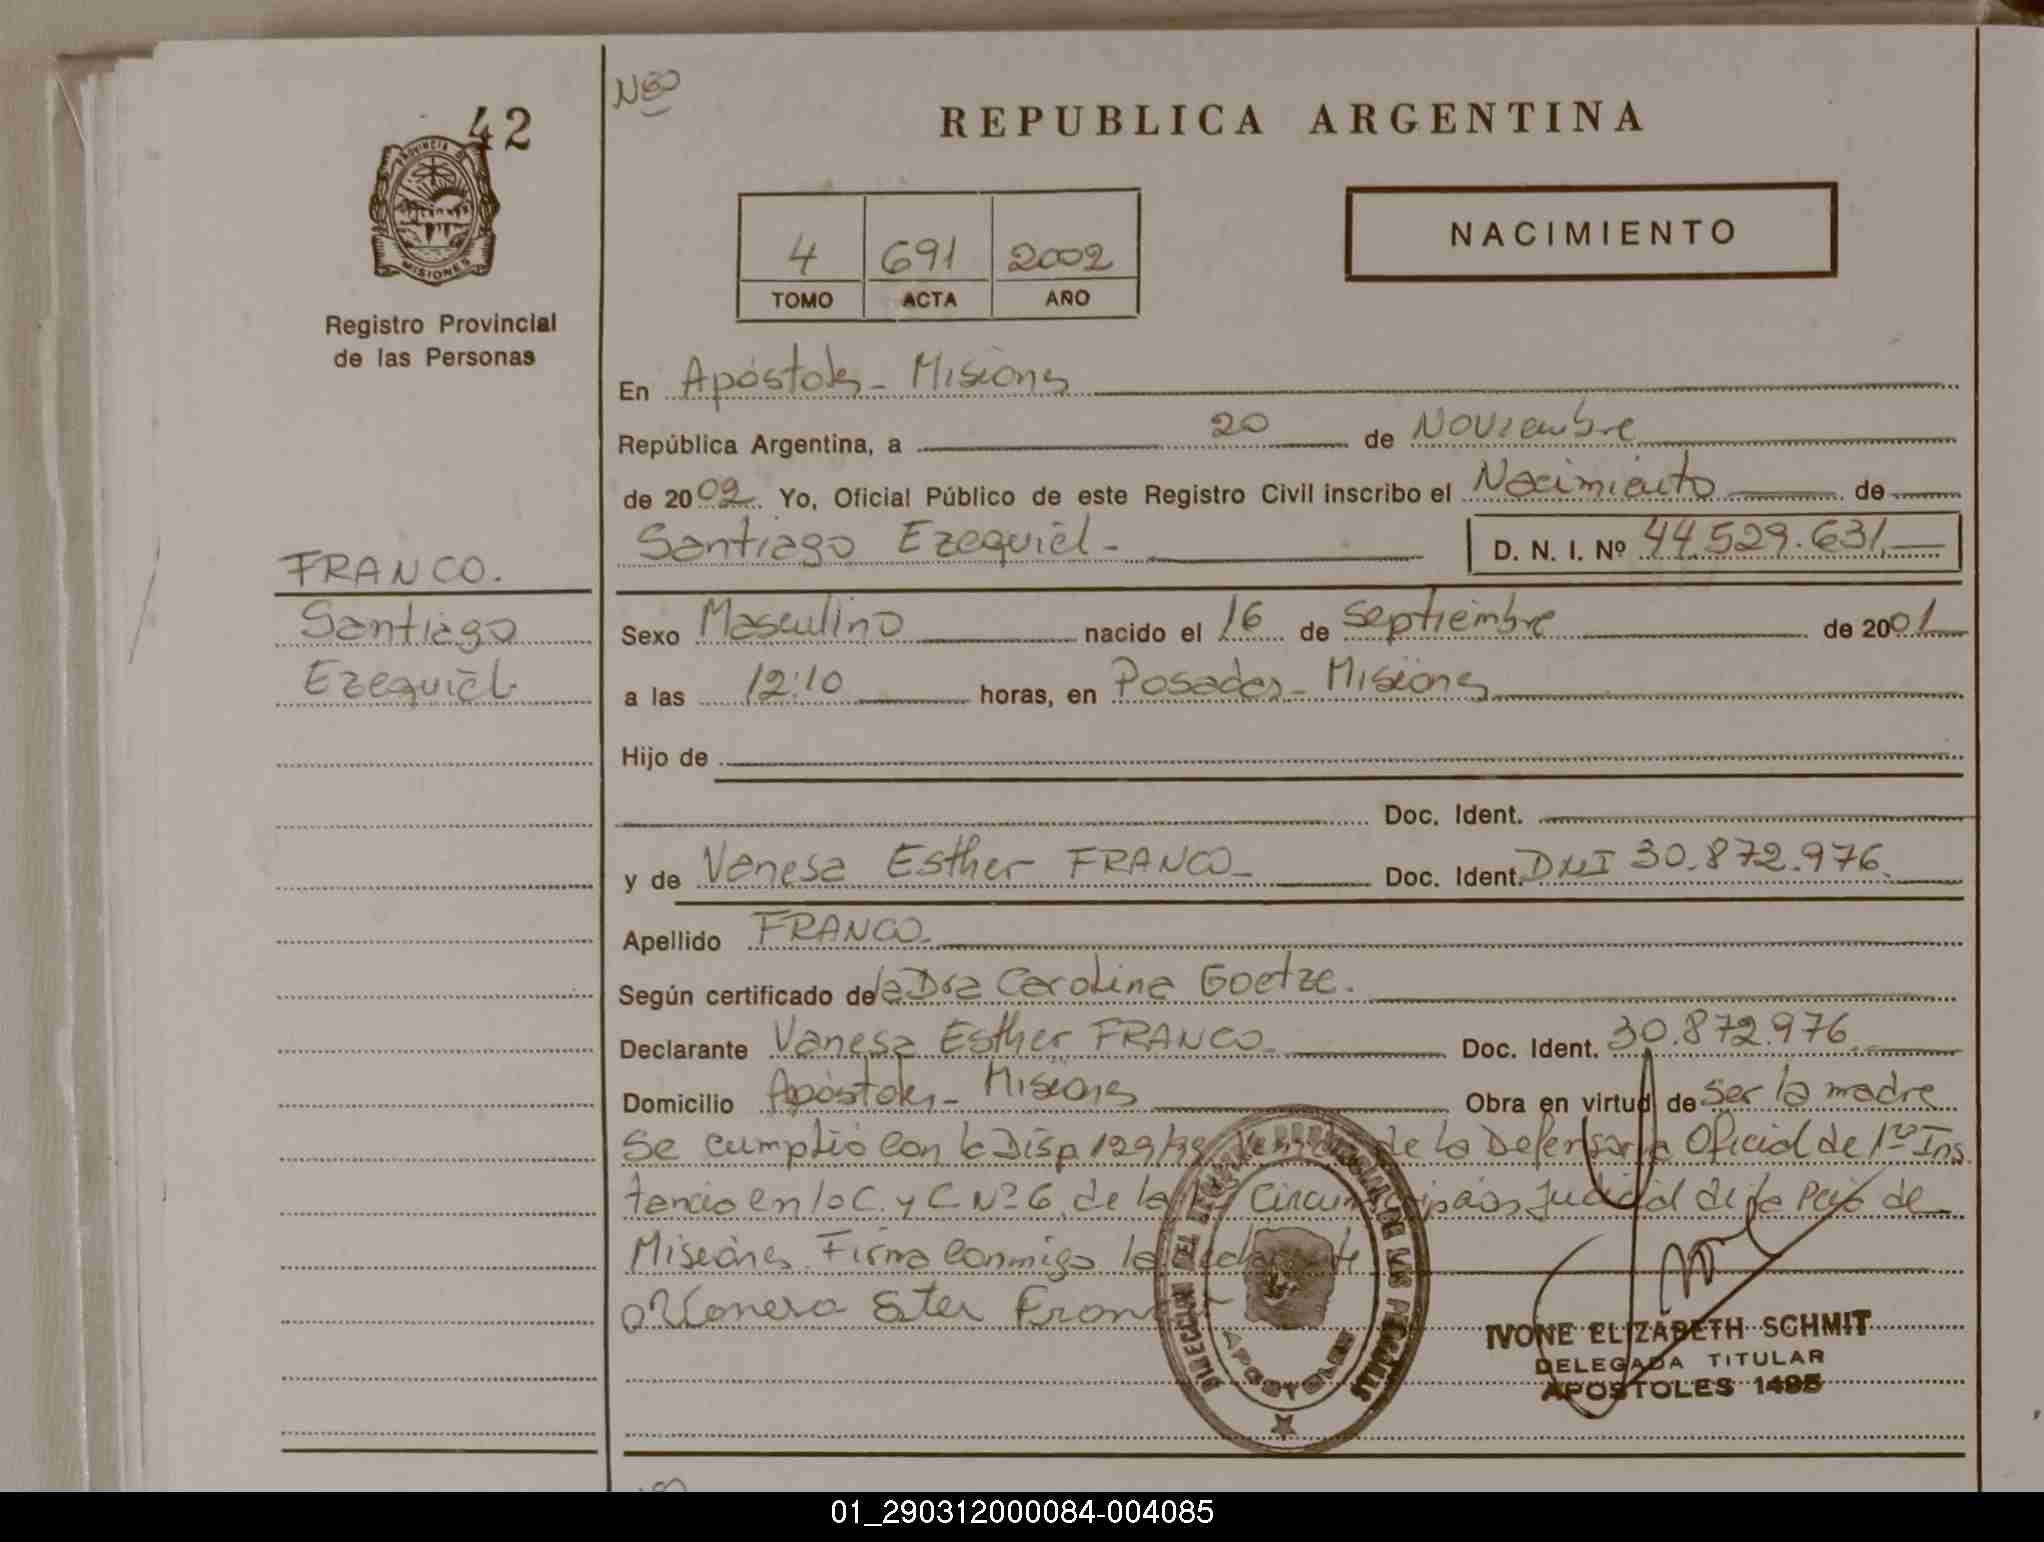 42
PROVINCIA DE
MISIONES
Registro Provincial
de las Personas
FRANCO.
Santiago
Ezequiel.
REPUBLICA ARGENTINA
NACIMIENTO
4 691 2002
TOMO ACTA AÑO
En Apóstoles - Misiones
República Argentina, a 20 de Noviembre
de 2002. Yo, Oficial Público de este Registro Civil inscribo el Nacimiento de
Santiago Ezequiel - D. N. I. Nº 44.529.631
Sexo Masculino nacido el 16 de Septiembre de 2001
a las 12:10 horas, en Posadas - Misiones
Hijo de
Doc. Ident.
y de Vanesa Esther FRANCO - Doc. Ident. DNI 30.872.976.
Apellido FRANCO -
Según certificado de la Dra Carolina Goetze.
Declarante Vanesa Esther FRANCO - Doc. Ident. 30.872.976.
Domicilio Apóstoles - Misiones Obra en virtud de ser la madre
Se cumplió con la Disp 129/98 de la Defensoría Oficial de 1ra Ins
tancia en lo C. y C Nº 6, de la Circunscripción Judicial de la Pcia de
Misiones. Firma conmigo la declarante
Ester Franco
DIRECCION DEL REGISTRO PROVINCIAL DE LAS PERSONAS
APOSTOLES
IVONE ELIZABETH SCHMIT
DELEGADA TITULAR
APOSTOLES 1495
01_290312000084-004085